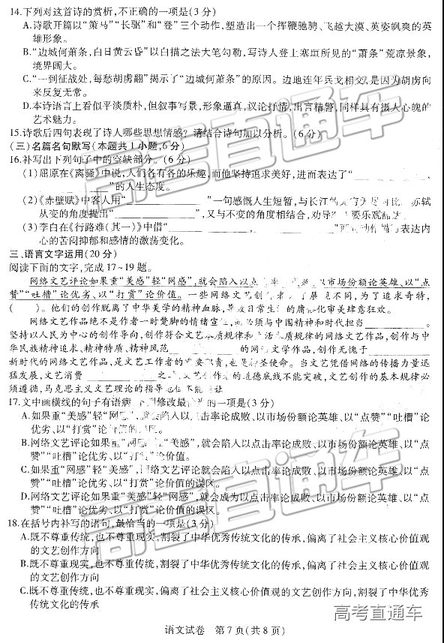 14.下列对这首诗的赏析,不正确的一项是(3分)
A.诗歌开篇以“策马”“长驱”和“登”三个动作,塑造出一个挥鞭驰骋、飞越大漠、英姿飒爽的英
雄形象。
B.“边城何萧条,白日黄云昏”以白描之法大笔勾勒,写诗人登上塞垣所见的“萧条”荒凉景象,
境界阔大。
C.“一到征战处,每愁胡虏翻”揭示了“边城何萧条”的原因。边地连年兵戈相交,是因为胡虏向
来反复无常。
D.本诗语言上看似平淡质朴,但叙事写景,形象逼真,议论抒情,出言精警,同样具有摄人心魄的
艺术魅力。
15.诗歌后四句表现了诗人哪些思想情感?请结合诗句加以分析。(6分)
(三)名篇名句默写(本题共1小题,6分)
16.补写出下列句子中的空缺部分。(6分)
(1)屈原在《离骚》中说,人们各有各的乐趣,而他坚持追求美好,进而表达了“
”的人生态度。
(2)《赤壁赋》中客人用“ ”一句感慨人生短暂,与长江的
从变的角度提出“ ”,又与不变的角度相结合,劝导
(3)李白在《行路难(其一)》中借“ 表达内
心的苦闷抑郁和感情的激荡变化。
三、语言文字运用(20分)
阅读下面的文字,完成17~19题。
网络文艺评论如果重“美感”轻“网感”,就会陷入以点 以市场份额论英雄、以“点
赞”“吐槽”论优劣、以“打赏”论价值。一些网络文艺创 不同,为了追求奇特,
( )。他们的创作脱离了中华美学的精神血脉,导致日常生 审美肆意狂欢。
网络文艺作品绝不是作者一时 的情绪宣 必须与中国精神和时代担当
坚持以人民为中心的创作导向,创作符合文艺 规律的网络文艺作品,创作与中华
民族精神追求、精神特质、精神风范 的网络文学作品,创作无愧于
新时代的网络文艺作品,是文艺工作者的 使命。当文艺凭借网络的传播力量迅
猛发展,文艺消费 道德底线不能突破,文艺创作的基本规律必
须遵循,马克思主义文艺理论的指导
17.文中画横线的句子有语病 修改最 的一项是(3分)
A.如果重“美感”轻“网感”, 入以点击率论成败、以市场份额论英雄、以“点赞”“吐槽”论
优劣、以“打赏”论价值的误区。
B.网络文艺评论如果 “美感”,就会陷入以点击率论成败、以市场份额论英雄、以“点
赞”“吐槽”论优劣、以“打赏”论价值。
C.如果重“网感”轻“美感”,网络文艺评论就会陷入以点击率论成败、以市场份额论英雄、以“点
赞”“吐槽”论优劣、以“打赏”论价值的误区。
D.网络文艺评论如果重“美感”轻“网感”,就会成为以点击率论成败、以市场份额论英雄、以“点
赞”“吐槽”论优劣、以“打赏”论价值的误区。
18.在括号内补写的语句,最恰当的一项是(3分)
A.既不尊重传统,也不尊重现实,割裂了中华优秀传统文化的传承,偏离了社会主义核心价值观
的文艺创作方向
B.既不尊重现实,也不尊重传统,割裂了中华优秀传统文化的传承,偏离了社会主义核心价值观
的文艺创作方向
C.既不尊重传统,也不尊重现实,偏离了社会主义核心价值观的文艺创作方向,割裂了中华优秀
传统文化的传承
高考直通车
语文试卷 第7页(共8页)